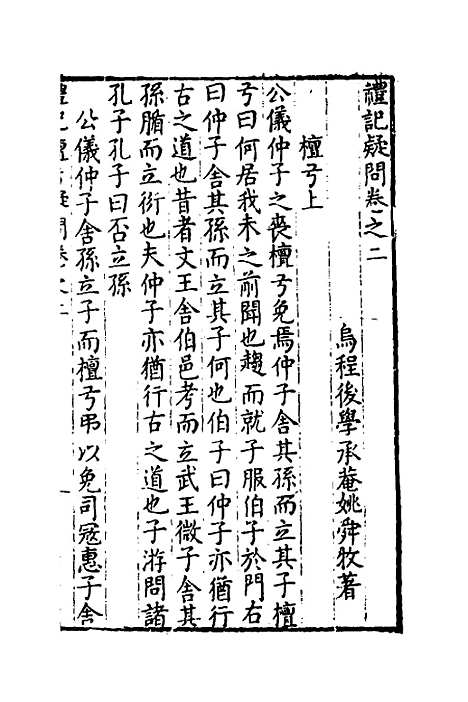 禮記疑問卷之二
烏程後學承菴姚舜牧著
檀弓上
公儀仲子之喪檀弓免焉仲子舍其孫而立其子檀
弓曰何居我未之前聞也趨而就子服伯子於門右
曰仲子舍其孫而立其子何也伯子曰仲子亦猶行
古之道也昔者文王舍伯邑考而立武王微子舍其
孫腯而立衍也夫仲子亦猶行古之道也子游問諸
孔子孔子曰否立孫
公儀仲子舍孫立子而檀弓弔以免司冦惠子舍
禮記檀弓疑問卷之二